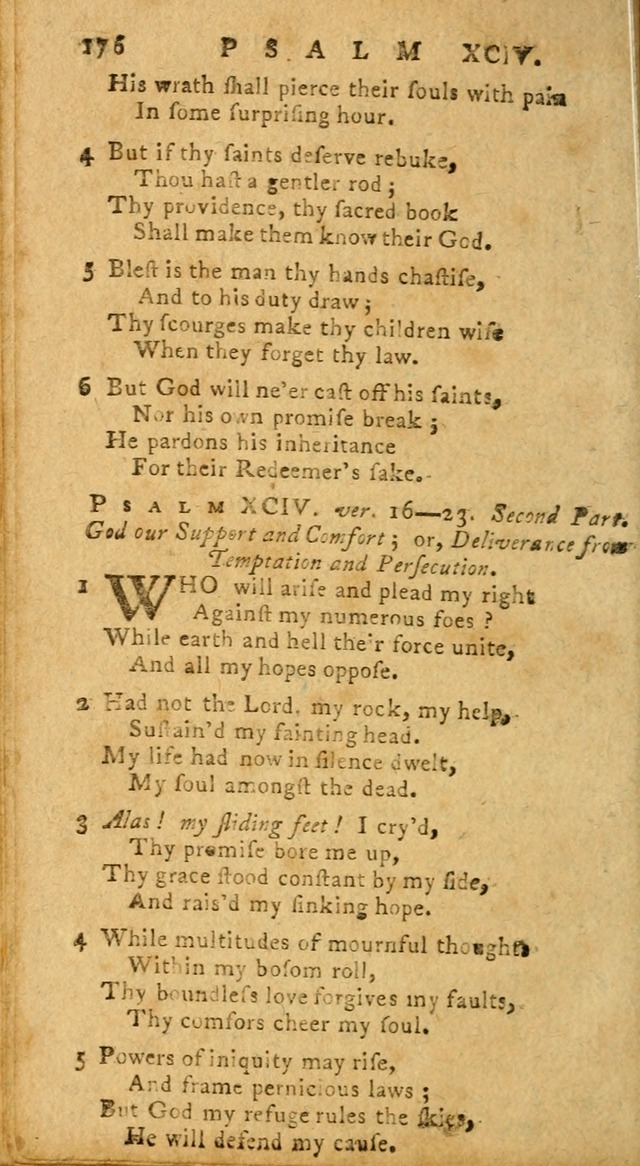 176 PSALM XCIV.
His wrath ſhall pierce their ſouls with pain
In ſome ſurpriſing hour.
4 But if thy ſaints deſerve rebuke,
Thou haſt a gentler rod ;
Thy providence, thy ſacred book
Shall make them know their God.
5 Bleſt is the man thy hands chaſtiſe,
And to his duty draw ;
Thy ſcourges make thy children wiſe
When they forget thy law.
6 But God will ne'er caſt off his ſaints,
Nor his own promiſe break ;
He pardons his inheritance
For their Redeemer's ſake.
PSALM XCIV. ver. 16—23. Second Part.
God our Support and Comfort ; or, Deliverance from
Temptation and Perſecution.
1 WHO will ariſe and plead my right
Againſt my numerous foes ?
While earth and hell the'r force unite,
And all my hopes oppoſe.
2 Had not the Lord, my rock, my help,
Suſtain'd my fainting head.
My life had now in ſilence dwelt,
My ſoul amongſt the dead.
3 Alas ! my ſliding feet ! I cry'd,
Thy promiſe bore me up,
Thy grace ſtood conſtant by my ſide,
And rais'd my ſinking hope.
4 While multitudes of mournful thoughts
Within my boſom roll,
Thy boundleſs love forgives my faults,
Thy comfors cheer my ſoul.
5 Powers of iniquity may riſe,
And frame pernicious laws ;
But God my refuge rules the ſkies,
He will defend my cauſe.